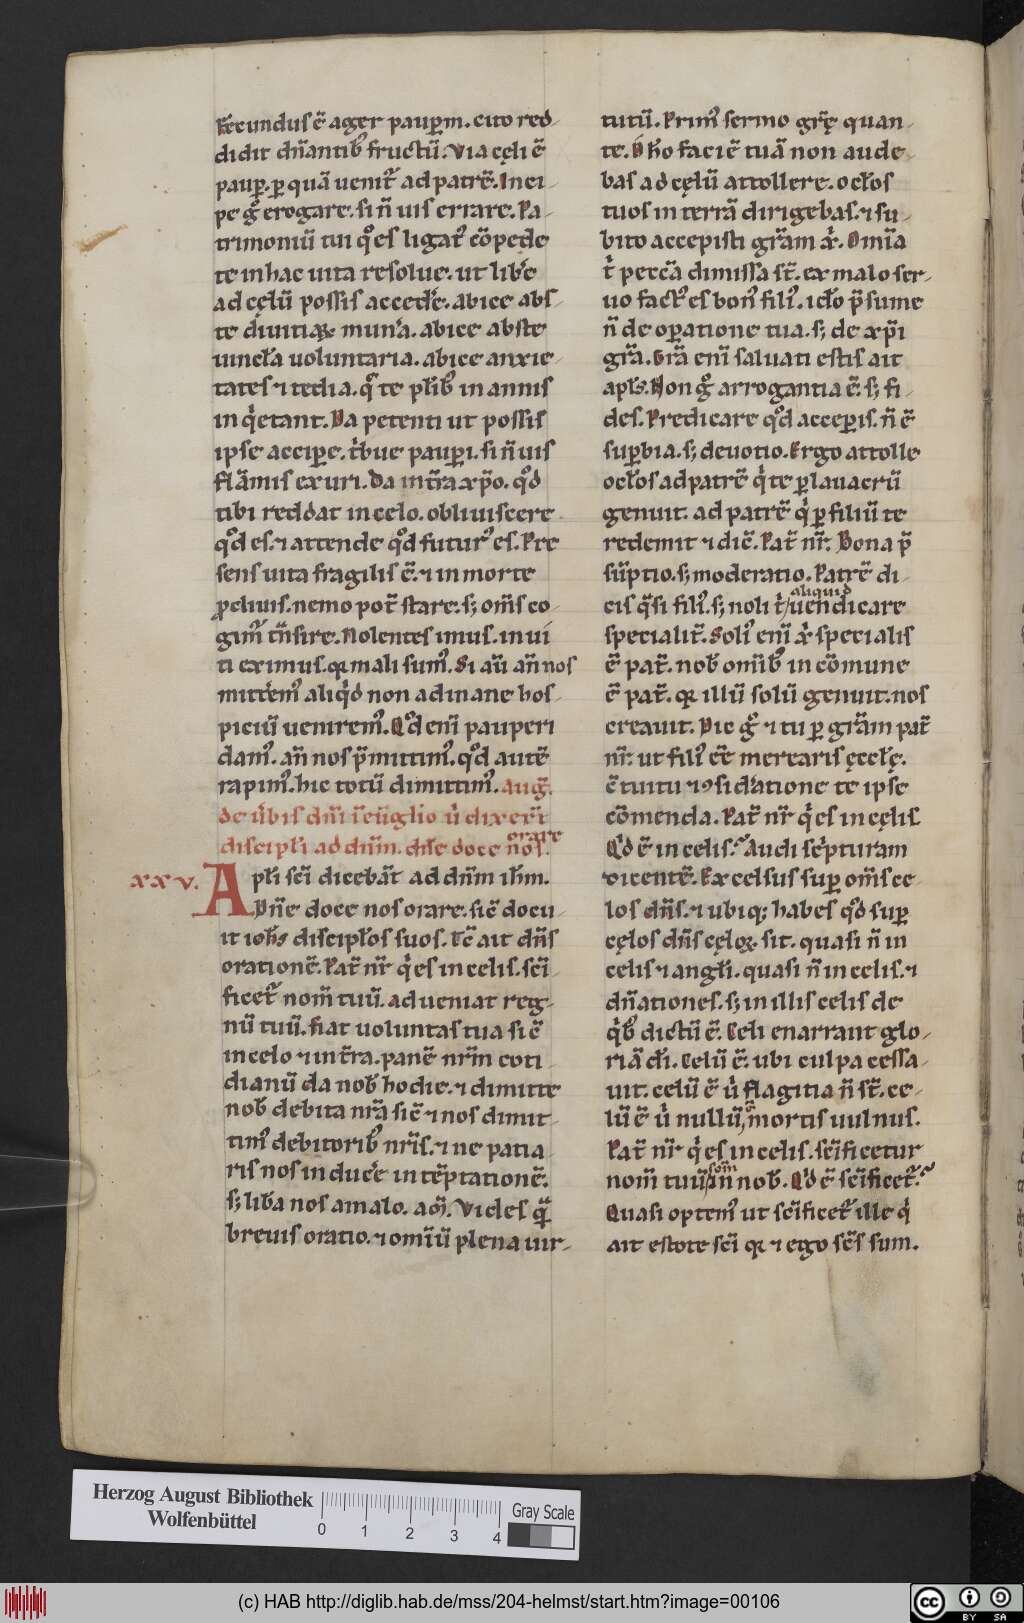 Fecundus ē ager pauꝑm. cito red-
didit dn̄antibꝰ fructū. Via cęli ē
pauꝑ. ꝑ quā uenit᷑ ad patrē. Inci-
pe gͦ erogare. si n̄ uis errare. Pa-
trimoniū tui qͦ es ligatꝰ cōpede
te in hac uita resolue. ut libē
ad cęlū possis accedē. abice abs-
te diuitiaꝝ mun̄a. abice abste
uincła uoluntaria. abice anxie-
tates ⁊ tedia. q̄ te płibꝰ in annis
inqͥetant. Da petenti ut possis
ipse accipe. tͥbue pauꝑi. si n̄ uis
flāmis exuri. Da in t̄ra xp̄o. qͦd
tibi reddat in celo. obliuiscere
qͦd es. ⁊ attende qͦd futurꝰ es. Pre
sens uita fragilis ē. ⁊ in morte
ꝓcliuis. nemo pot̄ stare. s; om̄s co-
gimꝰ t̄nsire. Nolentes imus. inui
ti eximus. qꝛ mali sumꝰ. Si aū an̄ nos
mittem̄ꝰ aliqͥd non ad inane hos-
piciū uenirem̄ꝰ. Qͦd eni᷑ pauperi
damꝰ. an̄ nos p̄mittimꝰ. qͦd autē
rapimꝰ. hic totū dimittimꝰ. Aug̃.
de ūbis dn̄i ī eūglio uͥ dixer̄t
discipłi ad dn̄m. dn̄e doce nos. orare
xxv. Apłi sc̄i dicebāt ad dn̄m ih̄m.
Dn̄e doce nos orare. sic̄ docu-
it ioh̄s discipłos suos. Tc̄ ait dn̄s
orationē. Pat̄ nr̄ qͥ es in celis. sc̄i-
ficet᷑ nom̄ tuū. adueniat reg-
nū tuū. fiat uoluntas tua sic̄
in celo ⁊ in t̄ra. panē nr̄m coti-
dianū da nob̄ hodie. ⁊ dimitte
nob̄ debita nr̄a sic̄ ⁊ nos dimit-
timꝰ debitoribꝰ nr̄is. ⁊ ne patia
ris nos inducē in tēptationē.
s; liba nos a malo. am̄. Vides qͣ
breuis oratio. ⁊ omīū plena uir-
tutū. Primꝰ sermo gr̄ę quan-
te. O ho faciē tuā non aude-
bas ad cęlū attollere. ocłos
tuos in terrā dirigebas. ⁊ su-
bito accepisti gr̄am xͥ. Omīa
tͥ peccā dimissa st̄. ex malo ser-
uo factꝰ es bonꝰ filiꝰ. ido p̄sume
n̄ de oꝑatione tua. s; de xp̄i
gr̄a. Gr̄a eni᷑ saluati estis ait
apłs. Non gͦ arrogantia ē. s; fi-
des. Predicare qͦd acceꝑis. n̄ ē
suꝑbia. s; deuotio. Ergo attolle
ocłos ad patrē qͥ te ꝑ lauacrū
genuit. ad patrē qͥ ꝑ filiū te
redemit ⁊ dic̄. Pat̄ nr̄. Bona p̄
sūptio. s; moderatio. Patrē di-
cis qͣsi filiꝰ. s; noli tͥ aliquid uendicare
specialit̄. Soliꝰ eni᷑ xͥ specialis
ē pat̄. nob̄ omībꝰ in cōmune
ē pat̄. qꝛ illū solū genuit. nos
creauit. Dic gͦ ⁊ tu ꝑ gr̄am pat̄
nr̄. ut filiꝰ eē merearis ęccłę.
c̄tuitu ⁊ ꝯsidatione te ipse
cōmenda. Pat̄ nr̄ qͥ es in cęlis.
Qͥd ē in celis? Audi scͥpturam
dicentē. Excelsus suꝑ om̄s ce-
los dn̄s. ⁊ ubiq; habes qͦd suꝑ
cęlos dn̄s cęloꝝ sit. quasi n̄ in
celis ⁊ angłi. quasi n̄ in celis. ⁊
dn̄ationes. s; in illis celis de
qͥbꝰ dictū ē. Celi enarrant glo-
riā di̅. Celū ē. ubi culpa cessa-
uit. celū ē uͥ flagitia n̄ st̄. ce-
lū ē uͥ nullū ē mortis uulnus.
Pat̄ nr̄ qͥ es in celis. sc̄ificetur
nom̄ tuū. in nob̄. Qͥd ē sc̄ificet᷑?
Quasi optemꝰ ut sc̄ificet᷑ ille qͥ
ait estote sc̄i qꝛ ⁊ ego sc̄s sum.
Herzog August Bibliothek
Wolfenbüttel
0 1 2 3 4
Gray Scale
(c) HAB http://diglib.hab.de/mss/204-helmst/start.htm?image=00106
cc BY SA